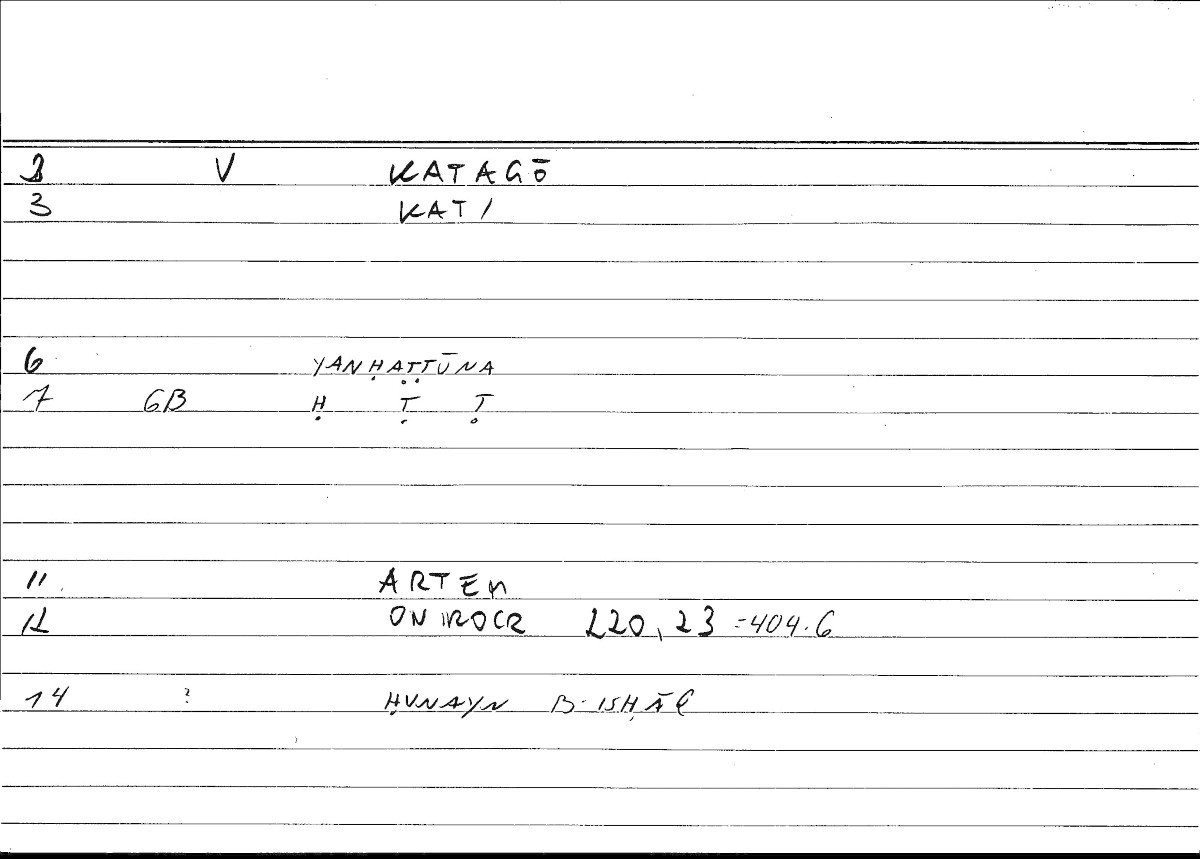 2 V KATAGŌ
3 KAT/
6 YANḤAṬṬŪNA
7 GB Ḥ Ṭ Ṭ
11 ARTEM
12 ONIROCR 220,23 =404.6
14 ? ḤUNAYN B-ISḤĀQ